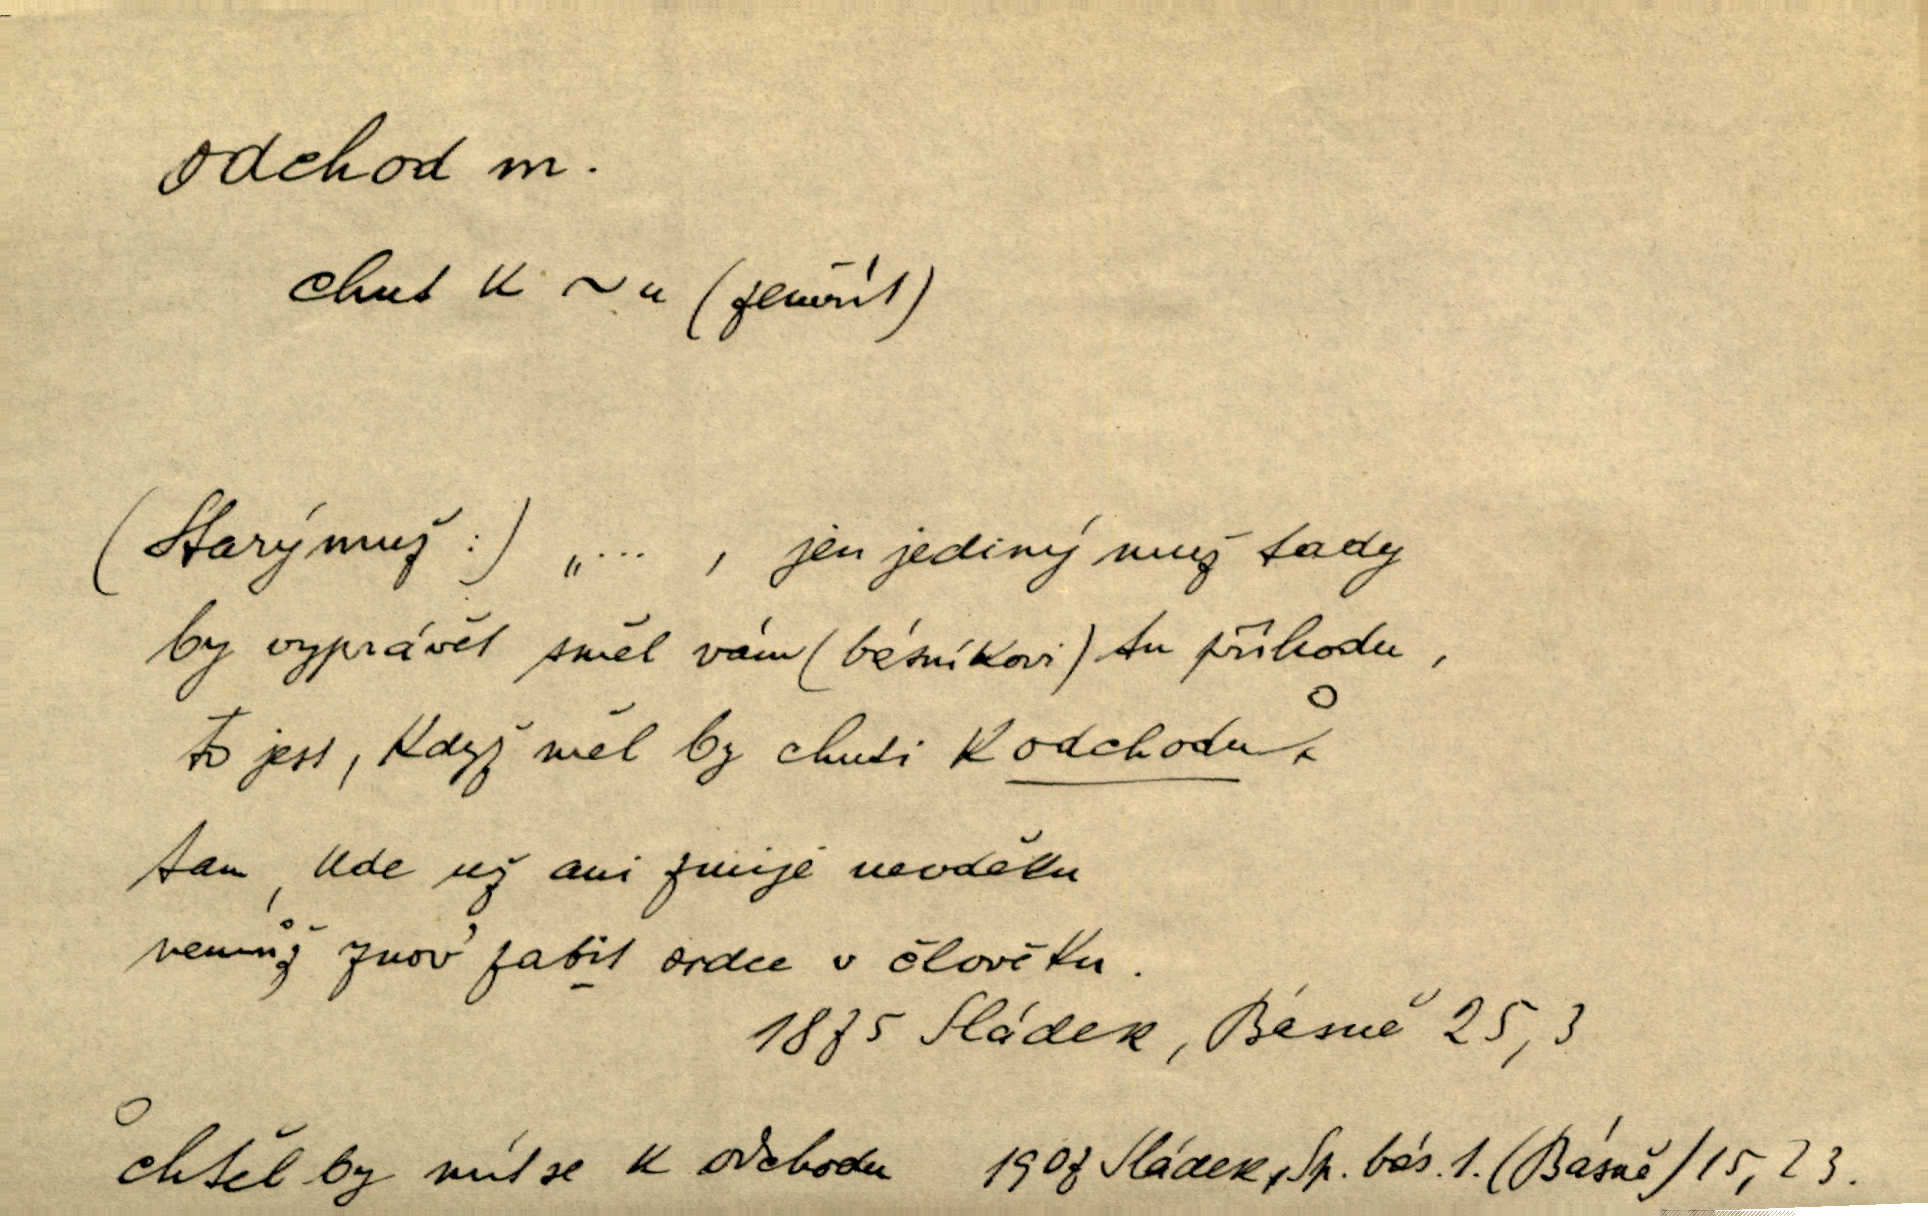 odchod m.
chuť k ~u (zemřít)
(Starý muž:) „... , jen jediný muž tady
by vyprávět směl vám (básníkovi) tu příhodu,
to jest, když měl by chuti k odchodu
tam, kde už ani zmije nevděku
nemůž znov' zabít srdce v člověku.
1875 Sládek, Básně 25,3
chtěl by mít se k odchodu 1907 Sládek, Sp. bás. 1. (Básně) 15, 23.